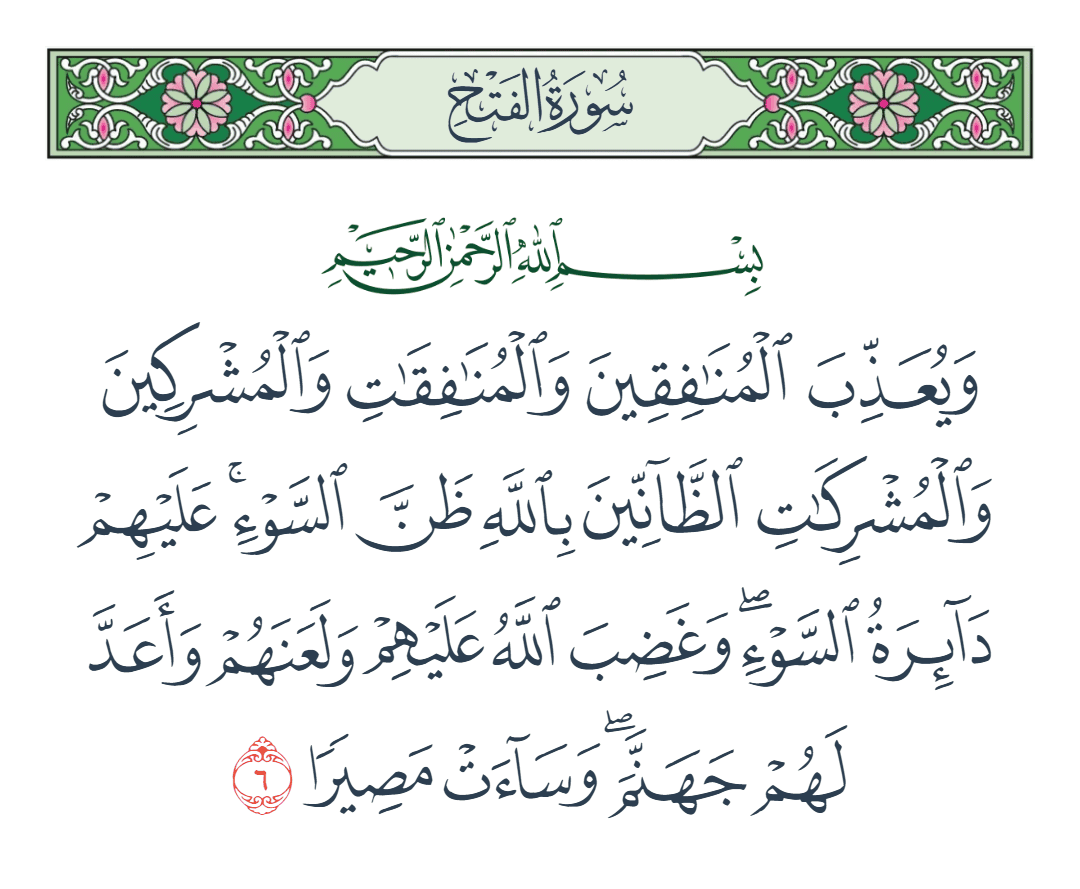 سُورَةُ الفَتۡحِ
بِسۡمِ ٱللَّهِ ٱلرَّحۡمَٰنِ ٱلرَّحِيمِ
وَيُعَذِّبَ ٱلۡمُنَٰفِقِينَ وَٱلۡمُنَٰفِقَٰتِ وَٱلۡمُشۡرِكِينَ
وَٱلۡمُشۡرِكَٰتِ ٱلظَّآنِّينَ بِٱللَّهِ ظَنَّ ٱلسَّوۡءِۚ عَلَيۡهِمۡ
دَآئِرَةُ ٱلسَّوۡءِۖ وَغَضِبَ ٱللَّهُ عَلَيۡهِمۡ وَلَعَنَهُمۡ وَأَعَدَّ
لَهُمۡ جَهَنَّمَۖ وَسَآءَتۡ مَصِيرٗا ٦